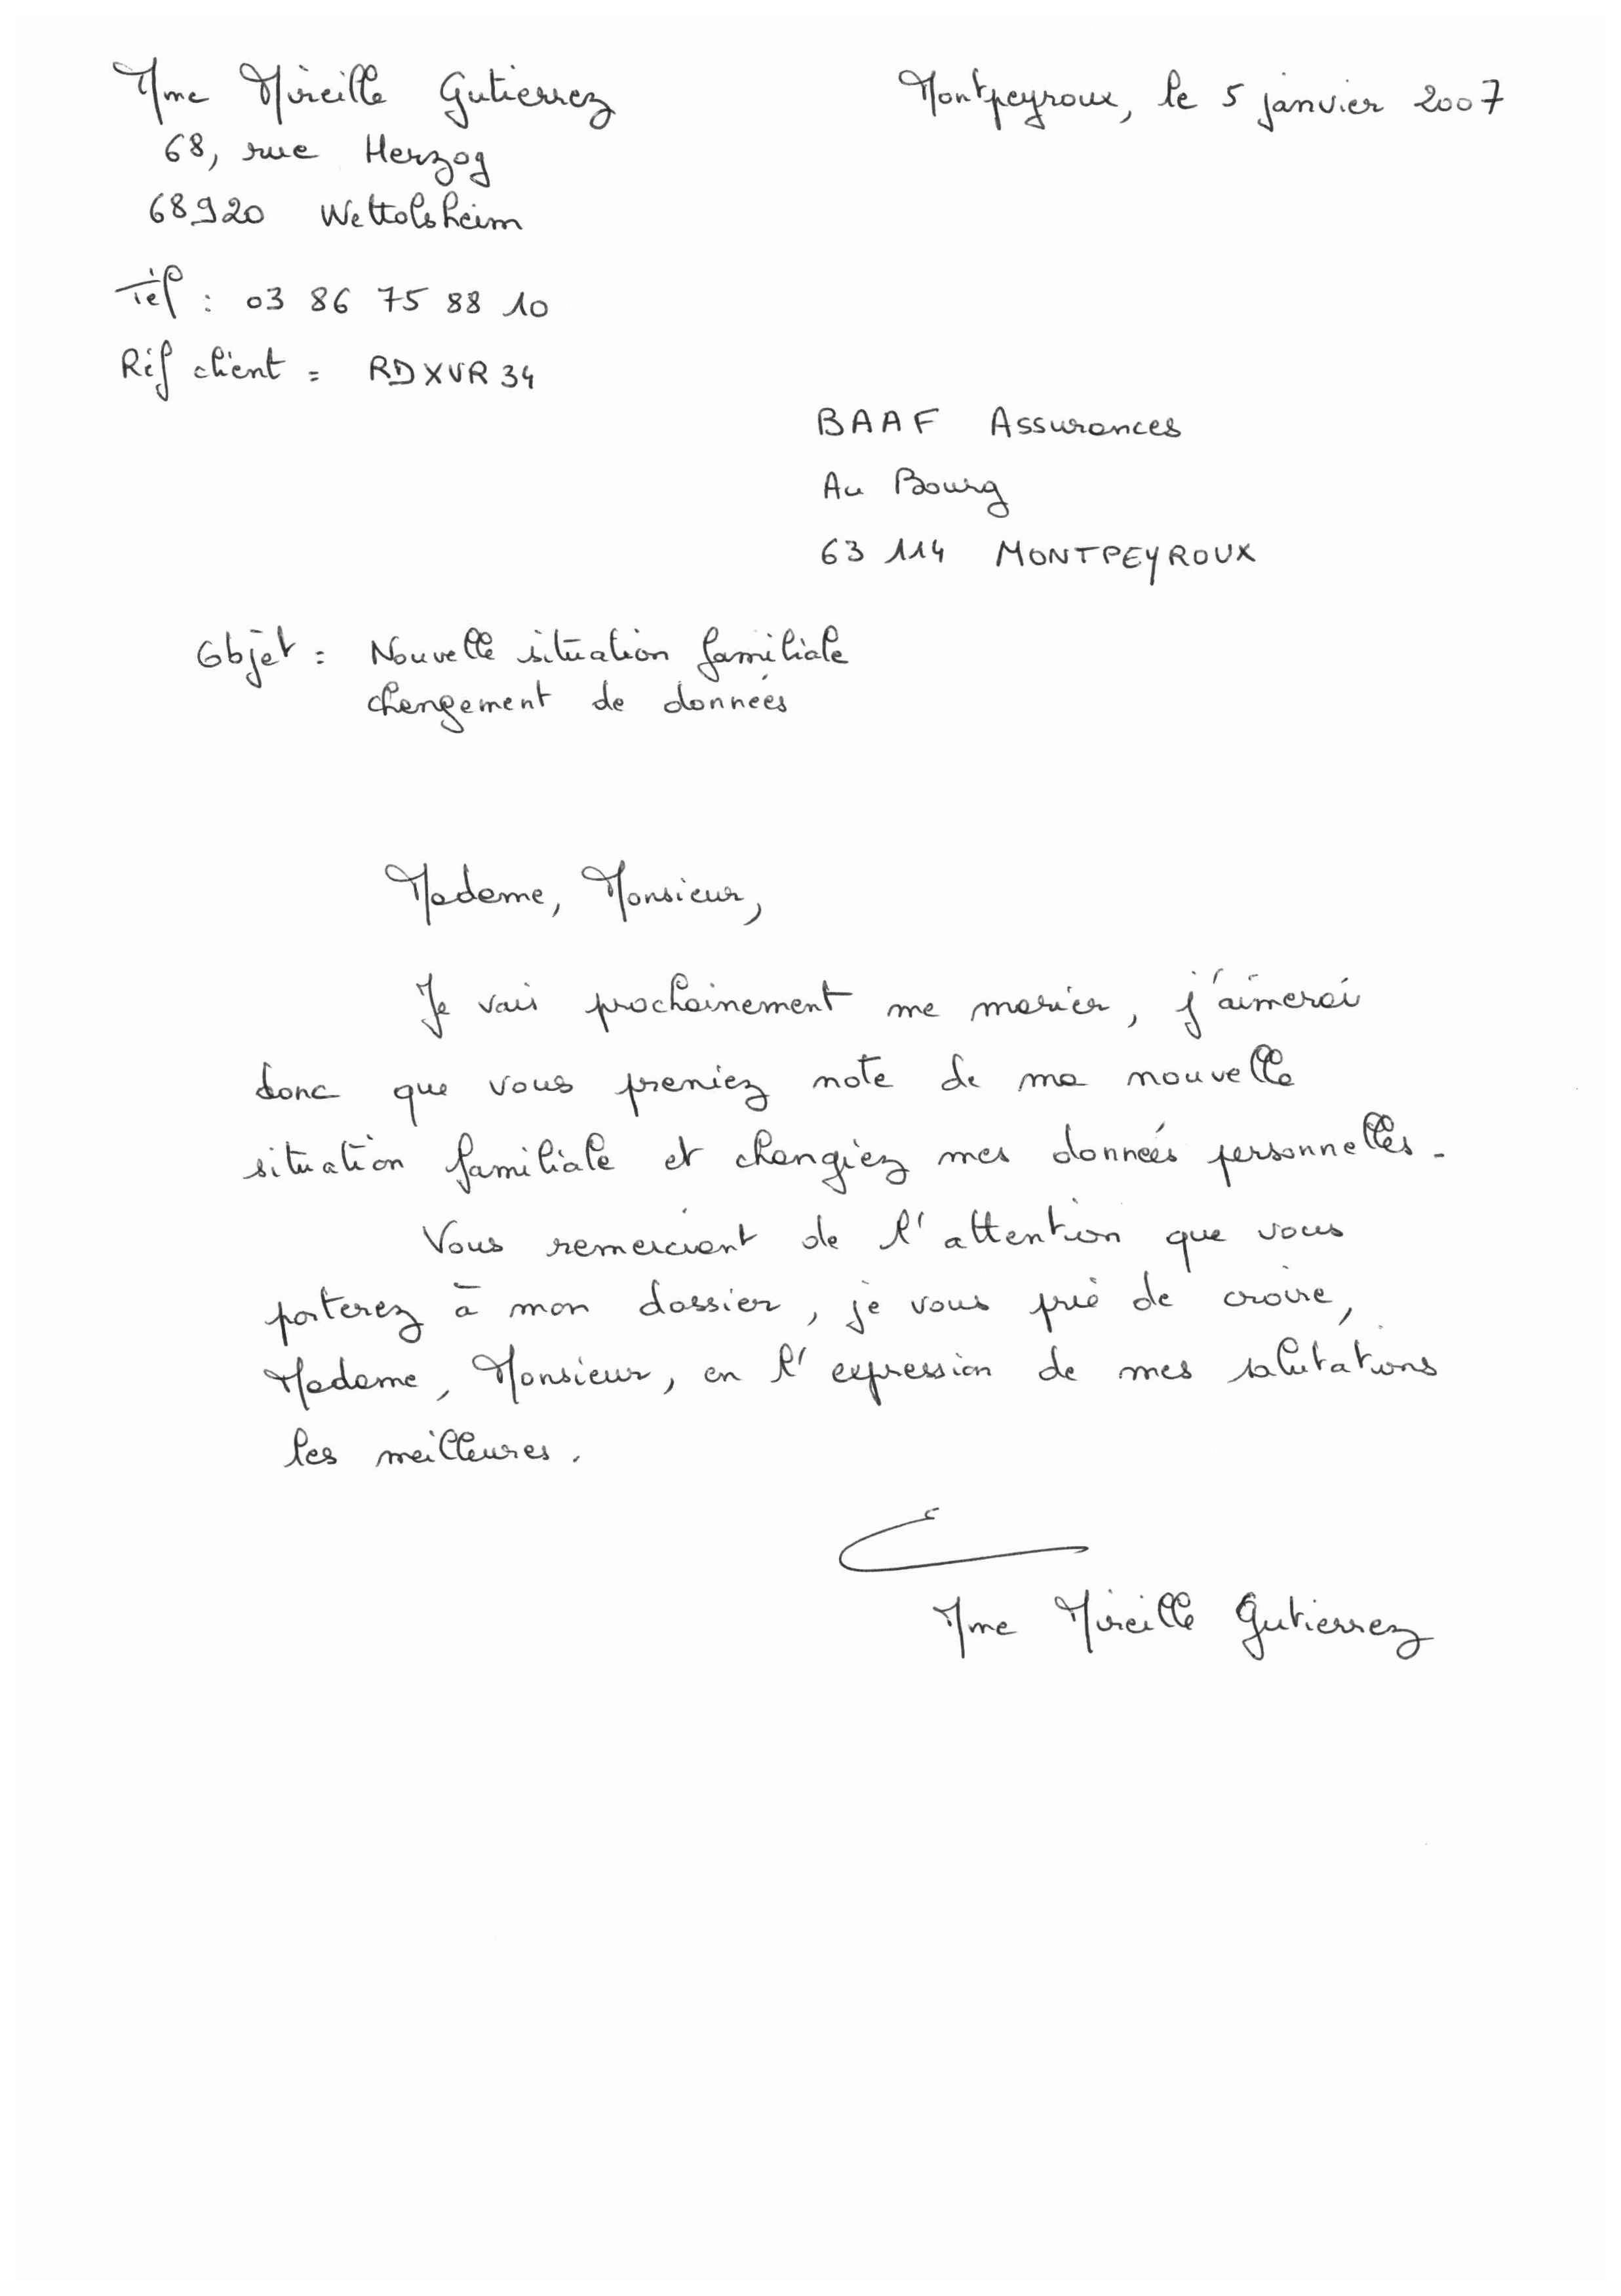 Mme Mireille Gutierrez
Montpeyroux, le 5 janvier 2007
68, rue Herzog
68920 Wettolsheim
Tél : 03 86 75 88 10
Réf client = RDXVR34
BAAF Assurances
Au Bourg
63 114 MONTPEYROUX
Objet = Nouvelle situation familiale
changement de données
Madame, Monsieur,
Je vais prochainement me marier, j'aimerai
donc que vous preniez note de ma nouvelle
situation familiale et changiez mes données personnelles.
Vous remerciant de l'attention que vous
porterez à mon dossier, je vous prie de croire,
Madame, Monsieur, en l'expression de mes salutations
les meilleures.
Mme Mireille Gutierrez